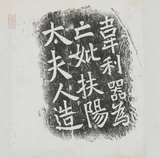 韋利器為
亡妣扶陽
大夫人造